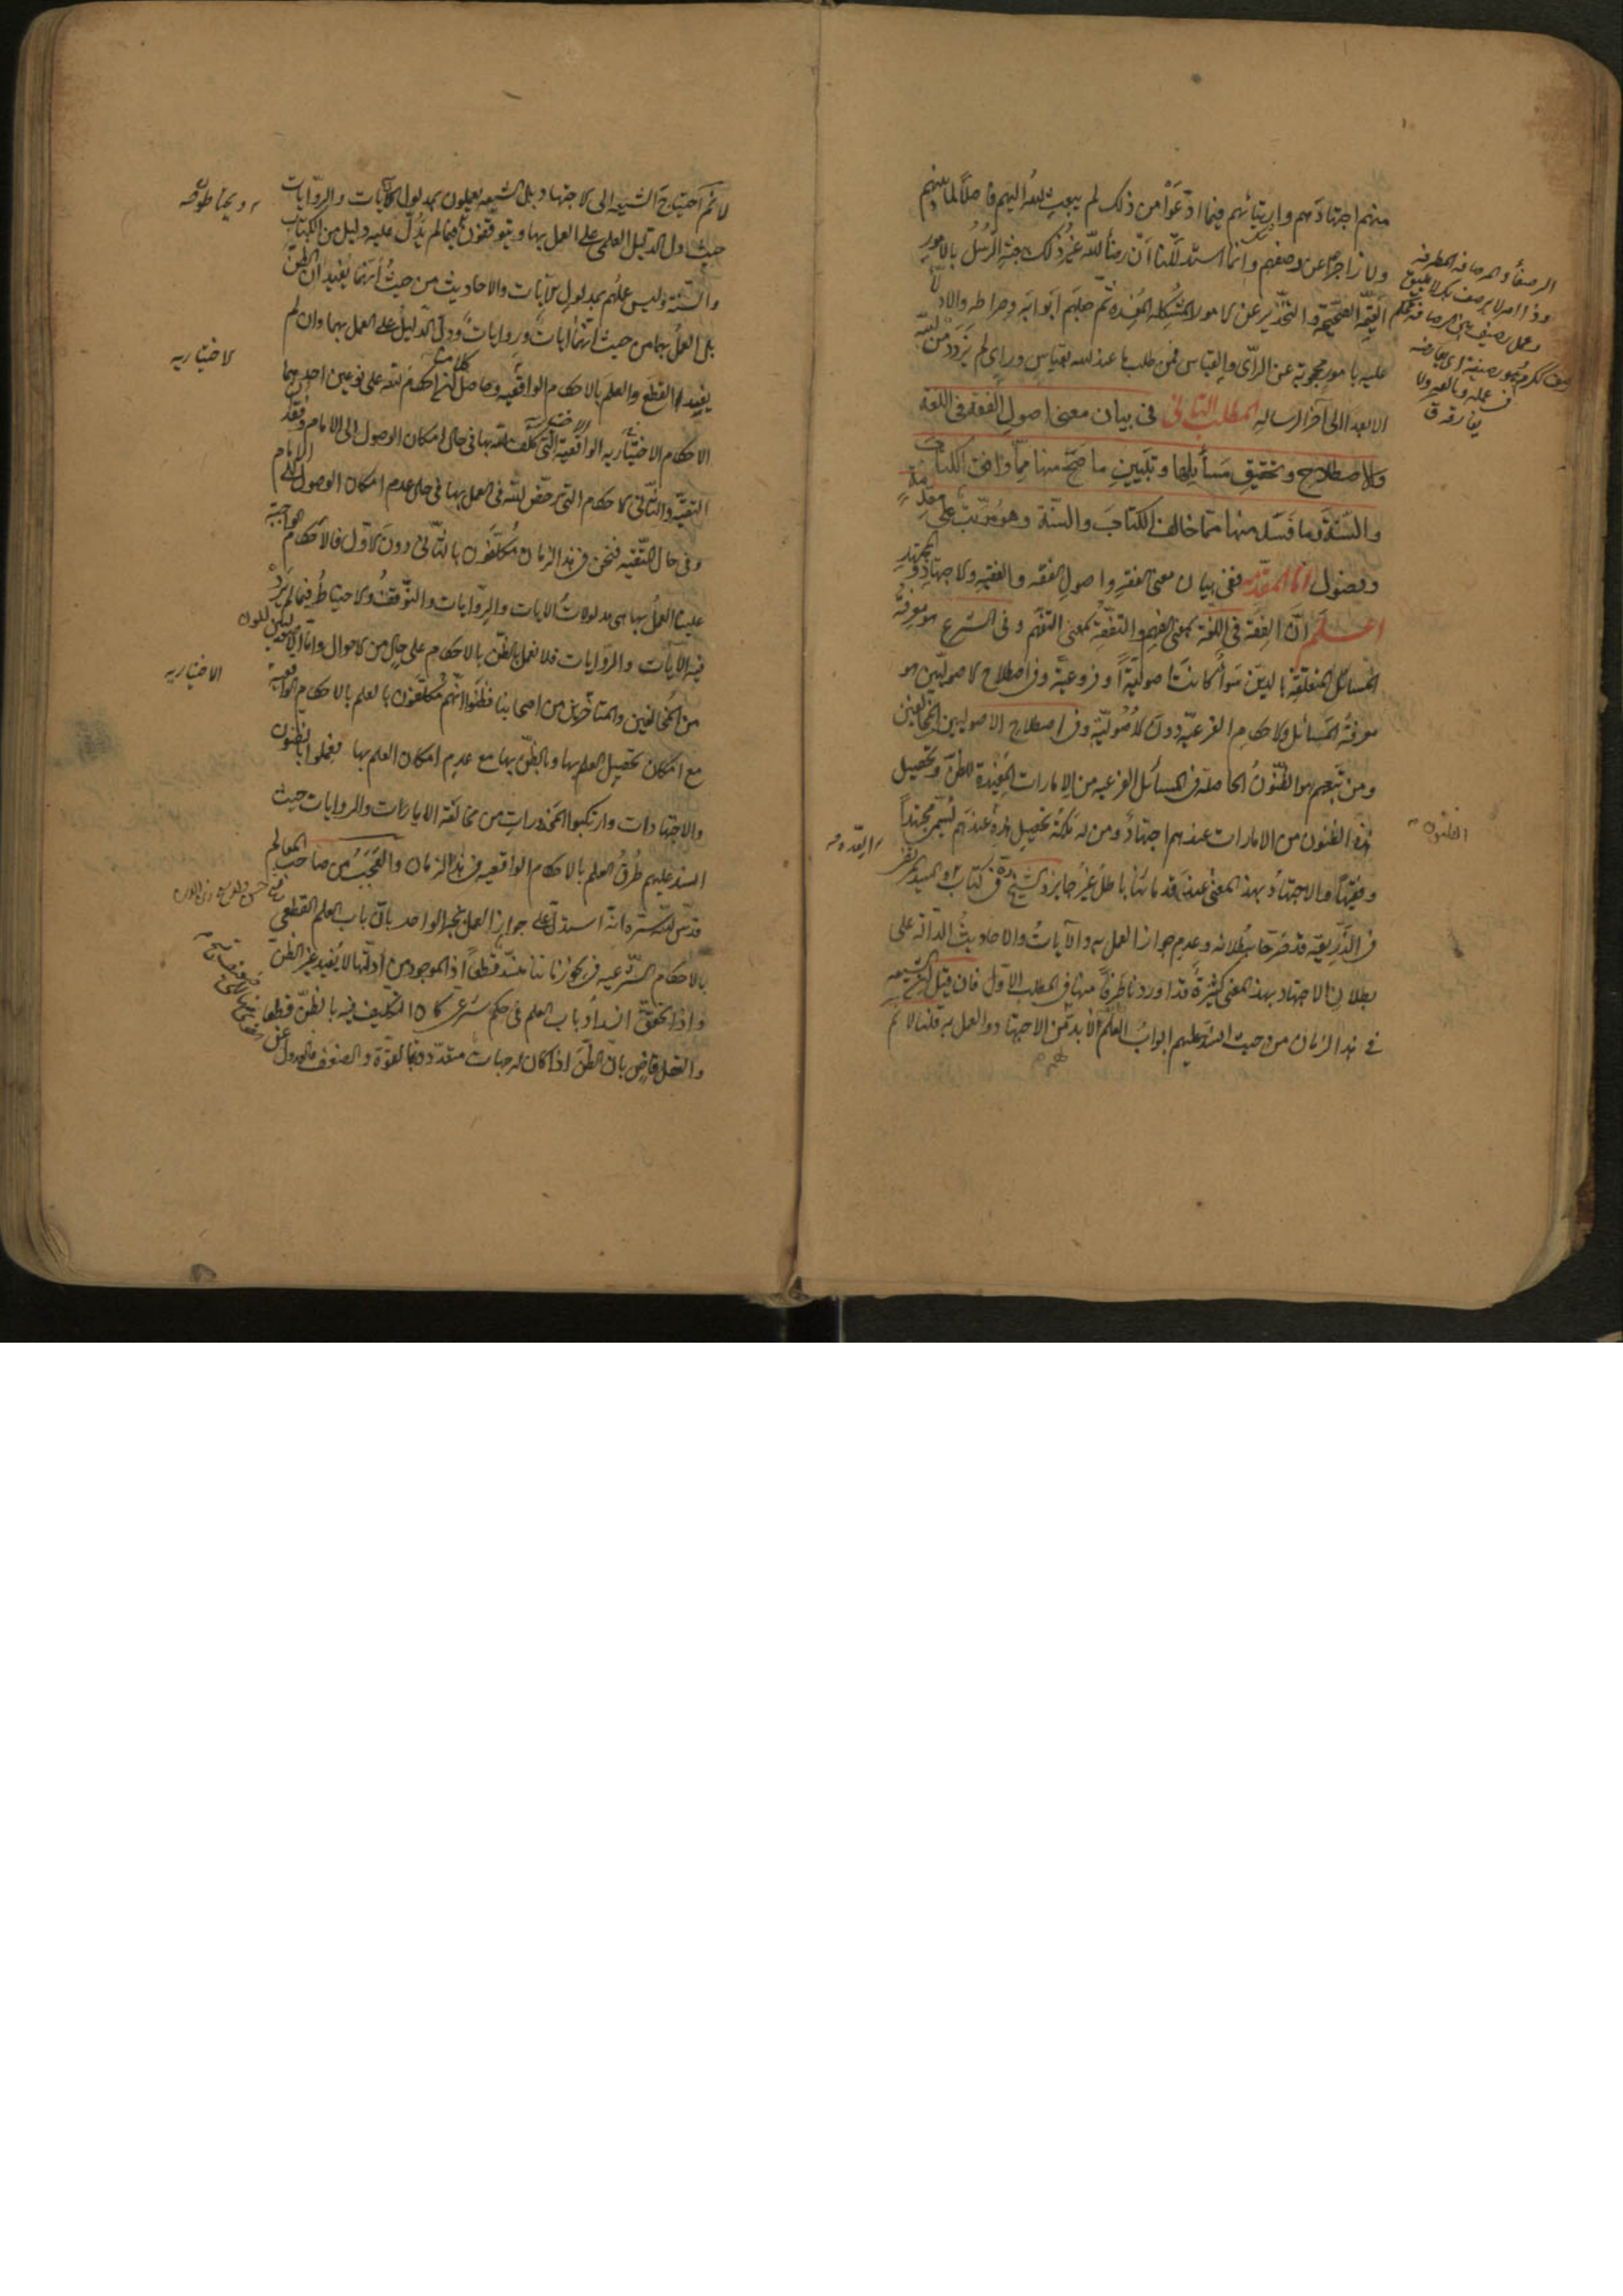 منهم اجتهادهم وارتيائهم فيما ادّعوا من ذلك لم يبعث الله اليهم فاصلاً لما بينهم
ولا زاجراً عن وصفهم وانّما استدللنا انّ رضأ الله غير ذلك ببعثه الرّسل بالامور
القيّمة الصّحيحة والتّحذير عن الامور المشكلة المفسدة ثم جعلهم ابوابه وصراطه والادلّاء
عليه بامور محجوبة عن الرّأى والقياس فمن طلب ما عند الله بقياس وراى لم يزدد من الله
الا بعدا الى آخر الرسالة المطلب الثانى فى بيان معنى اصول الفقه فى اللغة
والاصطلاح وتحقيق مسائلها وتبيين ما صحّ منها ممّا وافق الكتاب
والسّنّة وما فسد منها ممّا خالف الكتاب والسّنّة وهو مرتّب على مقدّمة
وفصول امّا المقدّمه ففى بيان معنى الفقه واصول الفقه والفقيه والاجتهاد والمجتهد
اعلم انّ الفقه فى اللغة بمعنى الفهم والتفقّه بمعنى التفهّم وفى الشّرع هو معرفة
المسائل المتعلّقة بالدين سوأ كانت اصوليّة او فروعيّة وفى اصطلاح الاصوليّين هو
معرفة المسائل والاحكام الفرعيّة دون الاصوليّة وفى اصطلاح الاصوليين المخالفين
ومن تبعهم هو الظّنون الحاصلة فى المسائل الفرعيه من الامارات المفيدة للظنّ وتحصيل
هذه الظنون من الامارات عندهم اجتهاد ومن له ملكة تحصيل هذه عندهم يسمّى مجتهداً
وفقيهاً والاجتهاد بهذا المعنى عند قدمائنا باطل غير جايز والشيخ ره فى كتاب والسيد المرتضى
فى الذّريعة قد صرّحا ببطلانه وعدم جواز العمل به والآيات والاحاديث الدّالة على
بطلان الاجتهاد بهذا المعنى كثيرة قد اوردنا طرفاً منها فى المطلب الاوّل فان قيل الشيعه
فى هذا الزمان من حيث انسدّ عليهم ابواب العلم لا بدّ من الاجتهاد والعمل به قلنا لا نم
الظنون
العدّه
لا نم احتياج الشيعه الى الاجتهاد بل الشيعه يعملون بمدلول الآيات والروّايات
حيث دلّ الدّليل العلمى على العمل بها ويتوقفون فيما لم يدلّ عليه دليل من الكتاب
والسّنّة وليس عملهم بمدلول الآيات والاحاديث من حيث انهما يفيدان الظنّ
بل العمل بهما من حيث انهما ايات وروايات ودلّ الدّليل على العمل بهما وان لم
يفيدا القطع والعلم بالاحكام الواقعيّه وحاصل كلامنا انّ احكام الله على نوعين احدهما
الاحكام الاختياريه الواقعيّة التى كلّف الله بها فى حال امكان الوصول الى الامام وفقد
التقيّة والثّانى الاحكام التى رخّص الله فى العمل بها فى حال عدم امكان الوصول الى الامام
وفى حال التّقيه فنحن فى هذا الزمان مكلّفون بالثّانى دون الاوّل فالاحكام الواجبة
علينا العمل بها هى مدلولات الايات والرّوايات والتّوقّف والاحتياط فيما لم يرد
فيه الآيات والروّايات فلا نعمل بالظنّ بالاحكام على حال من الاحوال وامّا الاصوليّون
من المخالفين والمتاخّرين من اصحابنا فظنّوا انّهم مكلّفون بالعلم بالاحكام الواقعية
مع امكان تحصيل العلم بها وبالظنّ بها مع عدم امكان العلم بها فعملوا بالظنون
والاجتهادات وارتكبوا المحذورات من مخالفة الايات والروايات حيث
انسدّ عليهم طرق العلم بالاحكام الواقعيه فى هذا الزمان والعجب من صاحب المعالم
قدّس الله سرّه انّه استدلّ على جواز العمل بخبر الواحد بانّ باب العلم القطعى
بالاحكام الشّرعيه فى نحو زماننا منسدّ قطعاً اذ الموجود من ادلّتها لا يفيد غير الظنّ
واذا تحقّق انسداد باب العلم فى حكم شرعى كان التكليف فيه بالظنّ قطعا
والعقل قاض بانّ الظنّ اذا كان له جهات متعدّدة بالقوّة والضعف فالعدول عن
ويحتاطون
الاختياريه
الاختياريه